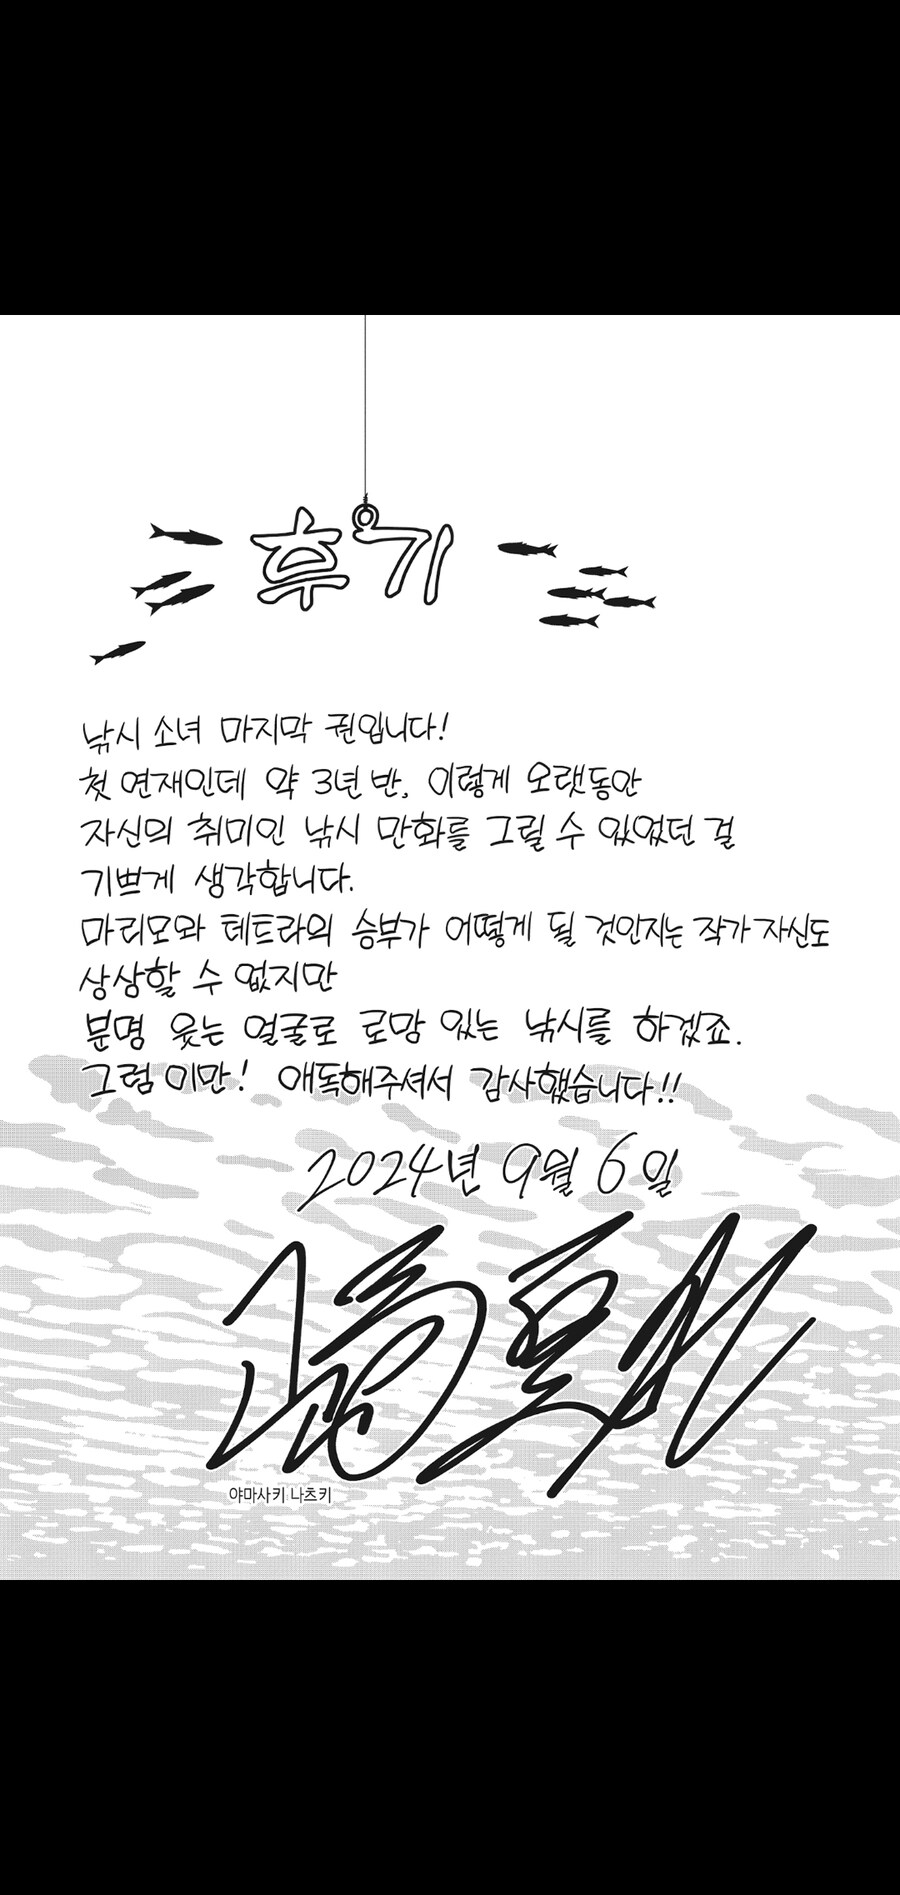 후기
낚시 소녀 마지막 권입니다!
첫 연재인데 약 3년 반, 이렇게 오랫동안
자신의 취미인 낚시 만화를 그릴 수 있었던 걸
기쁘게 생각합니다.
마리모와 테트라의 승부가 어떻게 될 것인지는 작가 자신도
상상할 수 없지만
분명 웃는 얼굴로 로망 있는 낚시를 하겠죠.
그럼 이만! 애독해주셔서 감사했습니다!!
2024년 9월 6일
야마사키 나츠키